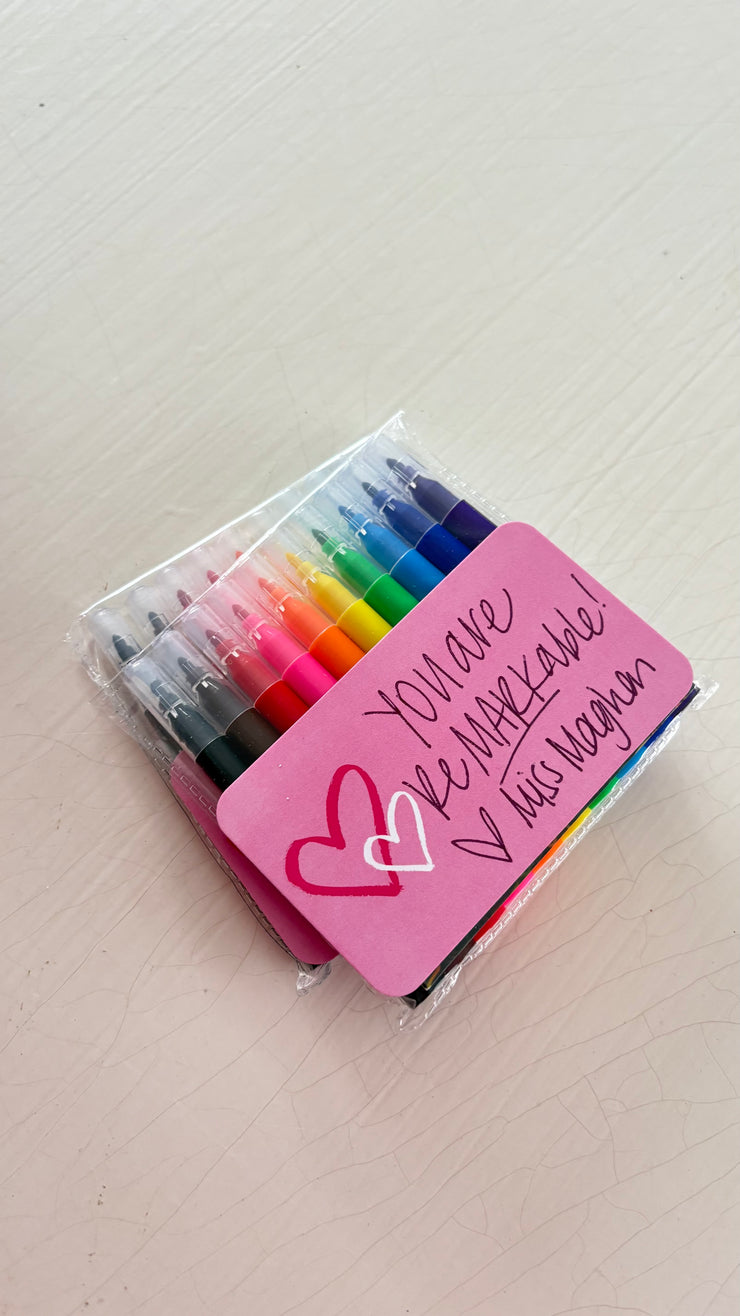 You are
ReMARKable!
♡ Miss Maghan